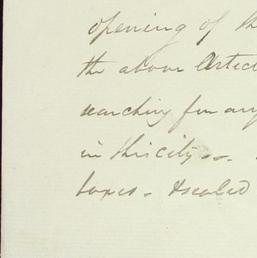 opening of th
the above Artic
searching for any
in this city
boxes - &